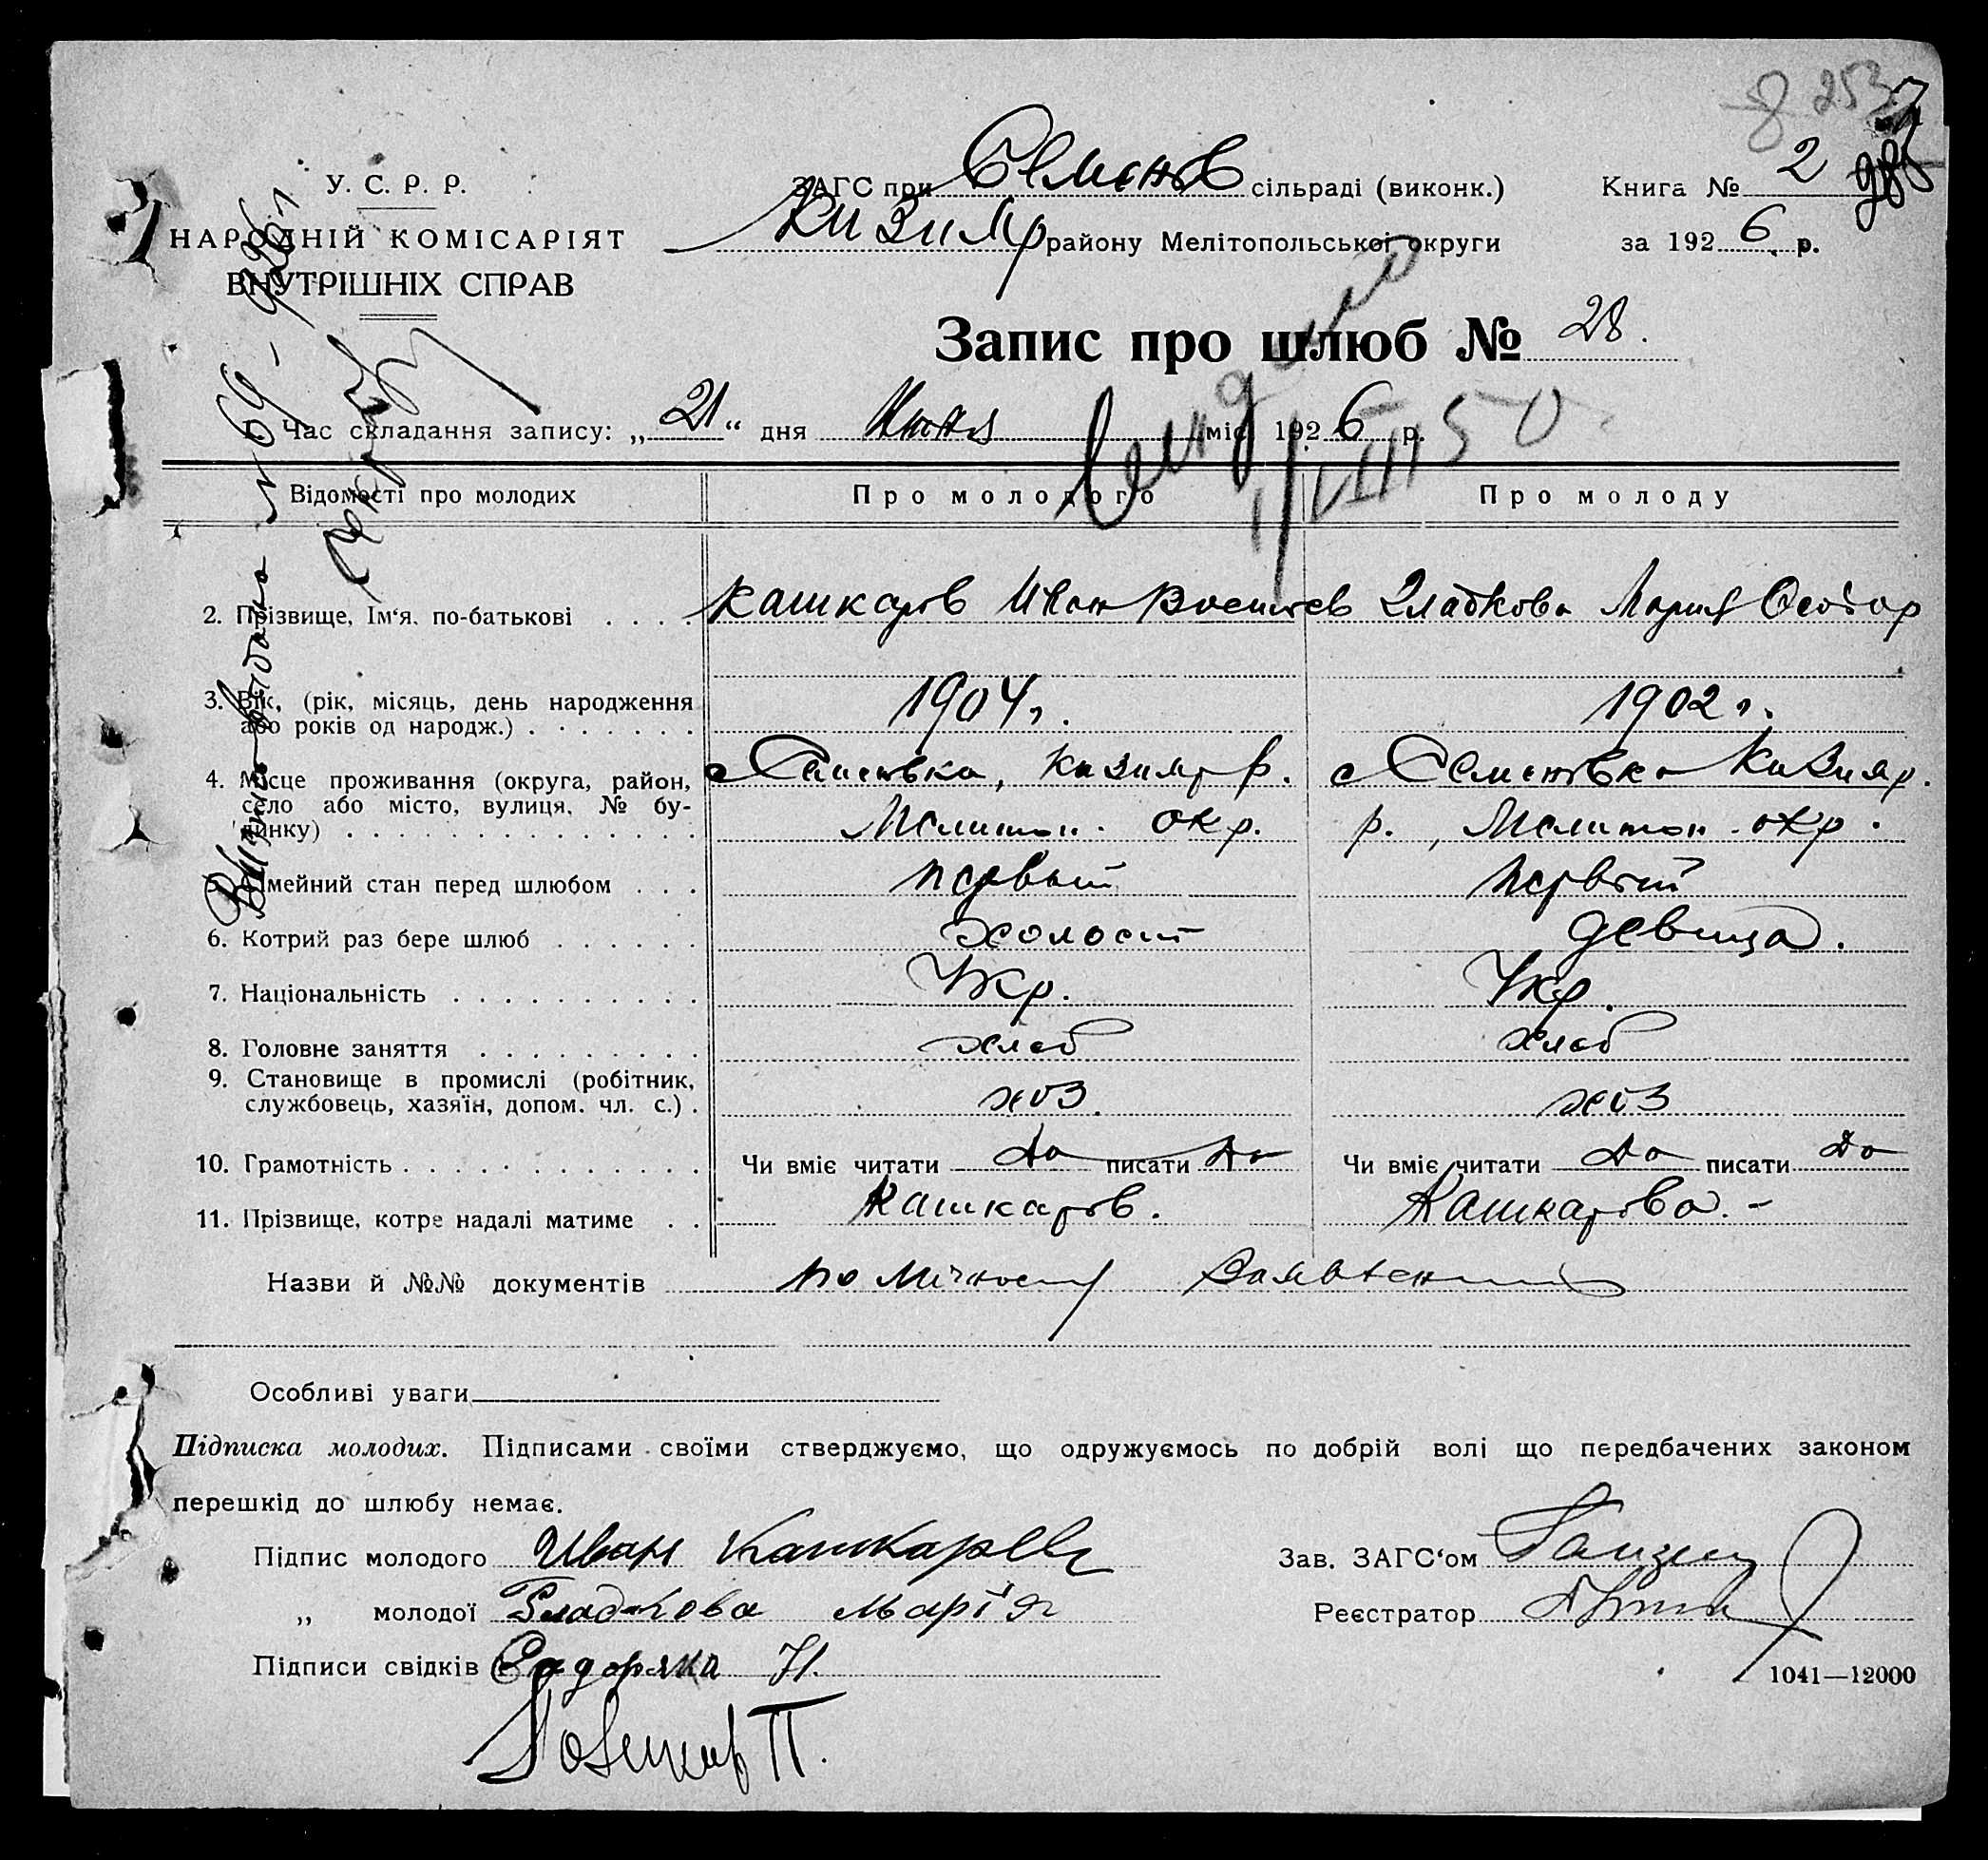 У. С. Р. Р.
НАРОДНІЙ КОМІСАРІЯТ
ВНУТРІШНІХ СПРАВ
ЗАГС при Семенов сільраді (виконк.)
Кизияр району Мелітопольської округи
Книга № 2
за 1926 р.
8 253
Запис про шлюб № 28.
1. Час складання запису: „21“ дня Июня міс. 1926 р.
VIII 50
№ 69 - 926 г
Відомості про молодих
Про молодого
Про молоду
2. Прізвище, Ім‘я, по-батькові . . . . Кашкаров Иван
Гладкова Мария Федор
3. Вік, (рік, місяць, день народження
або років од народж.) . . . . . . . 1904 г.
1902 г.
4. Місце проживання (округа, район,
село або місто, вулиця, № бу-
динку) . . . . . . . . . . . . . .
с Семеновка, Кизияр р.
Мелитоп. окр.
с Семеновка Кизияр.
р., Мелитоп. окр.
5. Сімейний стан перед шлюбом . . . первый
первый
6. Котрий раз бере шлюб . . . . . . холост
девица.
7. Національність . . . . . . . . . . Укр.
Укр.
8. Головне заняття . . . . . . . . . хлеб
хлеб
9. Становище в промислі (робітник,
службовець, хазяїн, допом. чл. с.) . хоз.
хоз
10. Грамотність . . . . . . . . . . . . Чи вміє читати да писати да
Чи вміє читати да писати да
11. Прізвище, котре надалі матиме . . Кашкаров.
Кашкарова. -
Назви й №№ документів по личност заявлению
Особливі уваги
Підписка молодих. Підписами своїми стверджуємо, що одружуємось по добрій волі що передбачених законом
перешкід до шлюбу немає.
Підпис молодого Иван Кашкарев
Зав. ЗАГС‘ом
„ молодої Гладкова Марія
Реєстратор
Підписи свідків
1041—12000